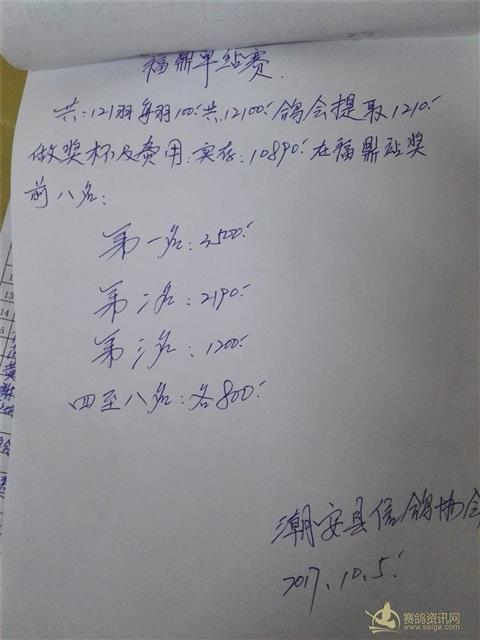 福鼎单站赛.
共:121羽每羽100.共12100.鸽会提取1210.
做奖杯及费用:实存:10890.在福鼎站奖
前八名:
第一名:3500.
第二名:2190.
第三名:1200.
四至八名:各800.
潮安县信鸽协会
2017.10.5.
13
14
赛鸽资讯网
www.saige.com